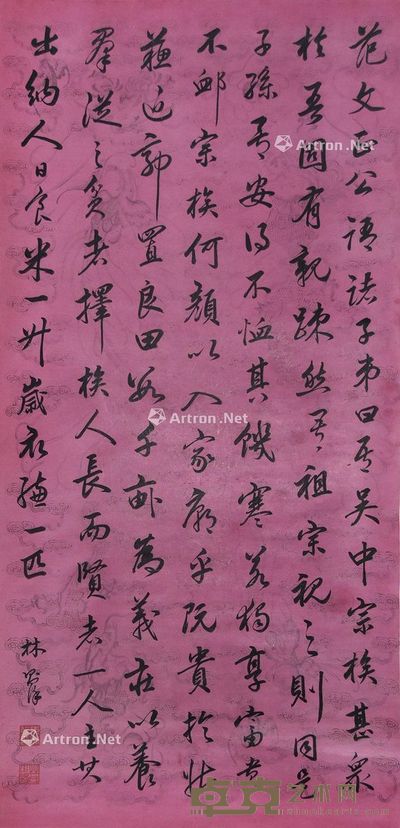 范文正公语诸子弟曰吾吴中宗族甚众
於吾固有親踈然吾祖宗視之則同是
子孫吾安得不恤其饑寒若獨享富贵
不卹宗族何顏以入家廟乎既貴於姑
蘇近郭置良田数千畝為義莊以養
羣從之貧者擇族人長而賢者一人主其
出納人日食米一升歲衣縑一匹
林
Artron.Net
Artron.Net
Artron.Net
Artron.Net
Artron.Net
卓克艺术网